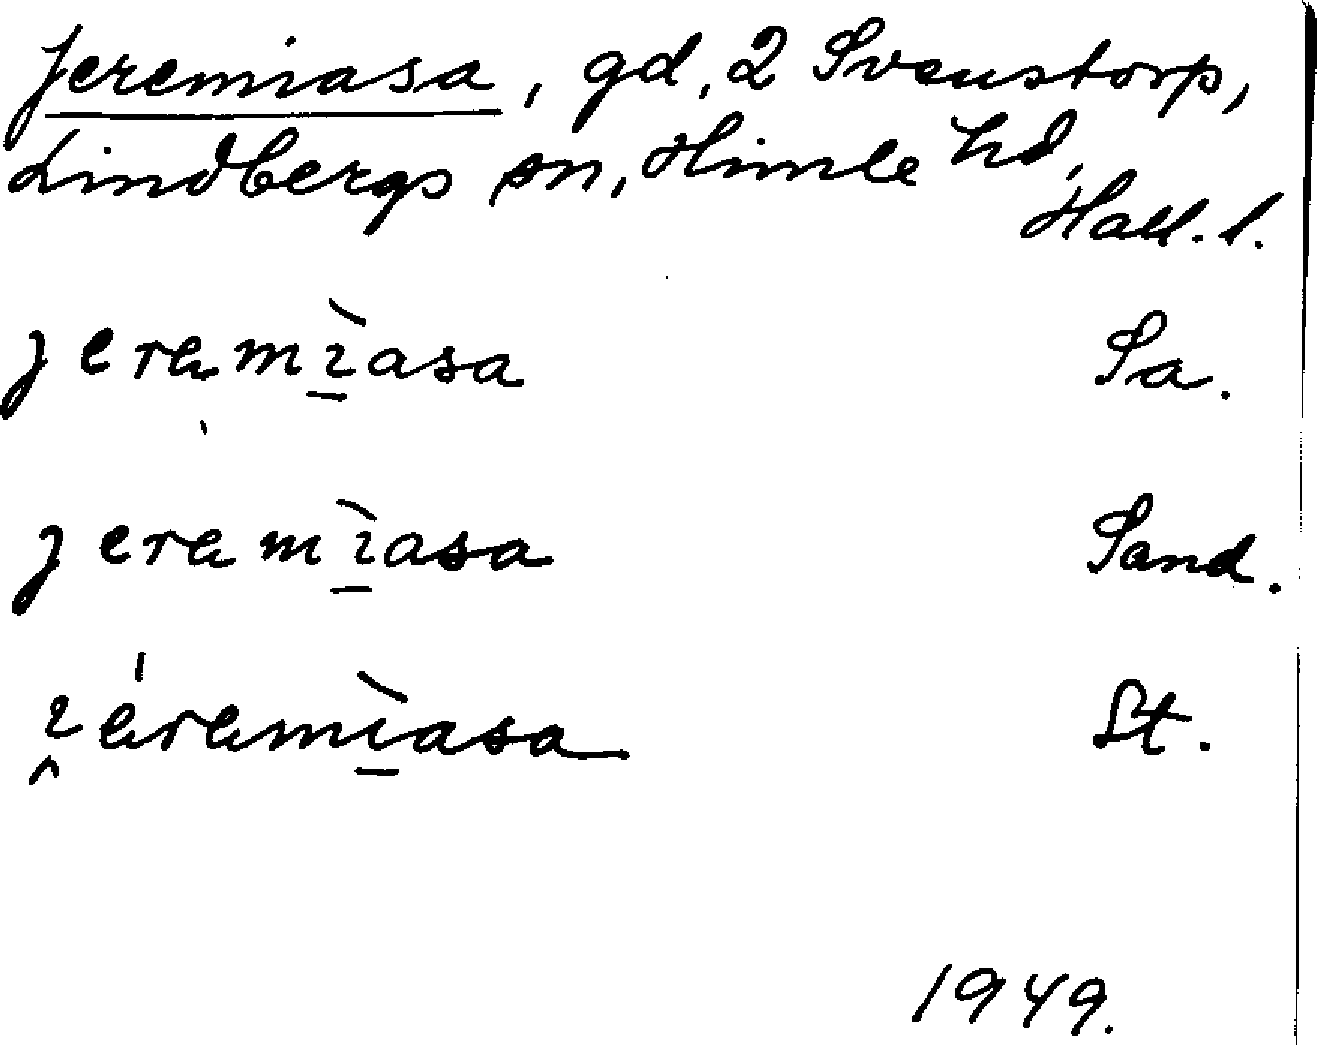 Jeremiasa, gd, 2 Svenstorp,
Lindbergs sn, Himle hd,
Hall. l.
jeremìasa Sa.
jeremìasa Sand.
ı̯éremìasa St.
1949.